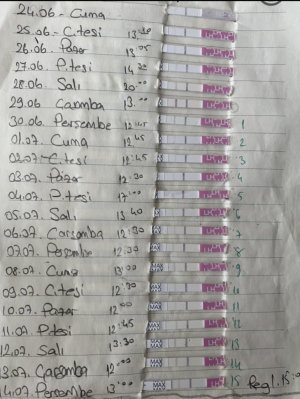 24.06 - Cuma
25.06 - C.tesi 13.30
26.06 Pazar 13.05
27.06 P.tesi 14.30
28.06 Salı 20.00
29.06 Carsmba 13.00
30.06 Persembe 12.45 1
01.07. Cuma 12.45 2
02.07 - C.tesi 12.45 3
03.07 Pazar 12.30 4
04.07 P.tesi 17.00 5
05.07. Salı 13.40 6
06.07 Carsamba 12.30 7
07.07. Persembe 12.30 8
08.07. Cuma 13.00 9
09.07. C.tesi 12.30
10.07. Pazar 12.00 11
11.07. P.tesi 12.45 12
12.07. Salı 13.30 13
13.07. Carsamba 12.00 14
14.07. Persembe 13.00 MAX 15 Regl. 15: